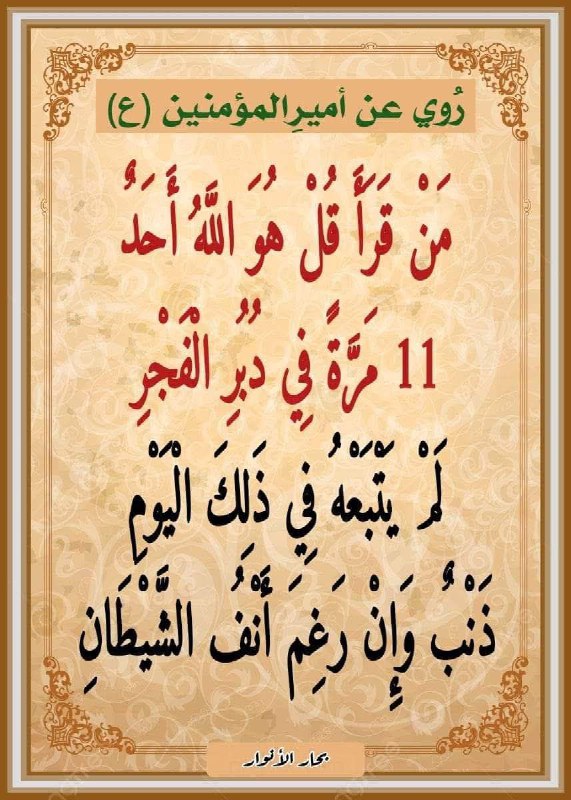 رُوي عن أميرِالمؤمنين (ع)
مَنْ قَرَأَ قُلْ هُوَ اللَّهُ أَحَدٌ
11 مَرَّةً فِي دُبُرِ الْفَجْرِ
لَمْ يَتْبَعْهُ فِي ذَلِكَ الْيَوْمِ
ذَنْبٌ وَإِنْ رَغِمَ أَنْفُ الشَّيْطَانِ
بحار الأنوار